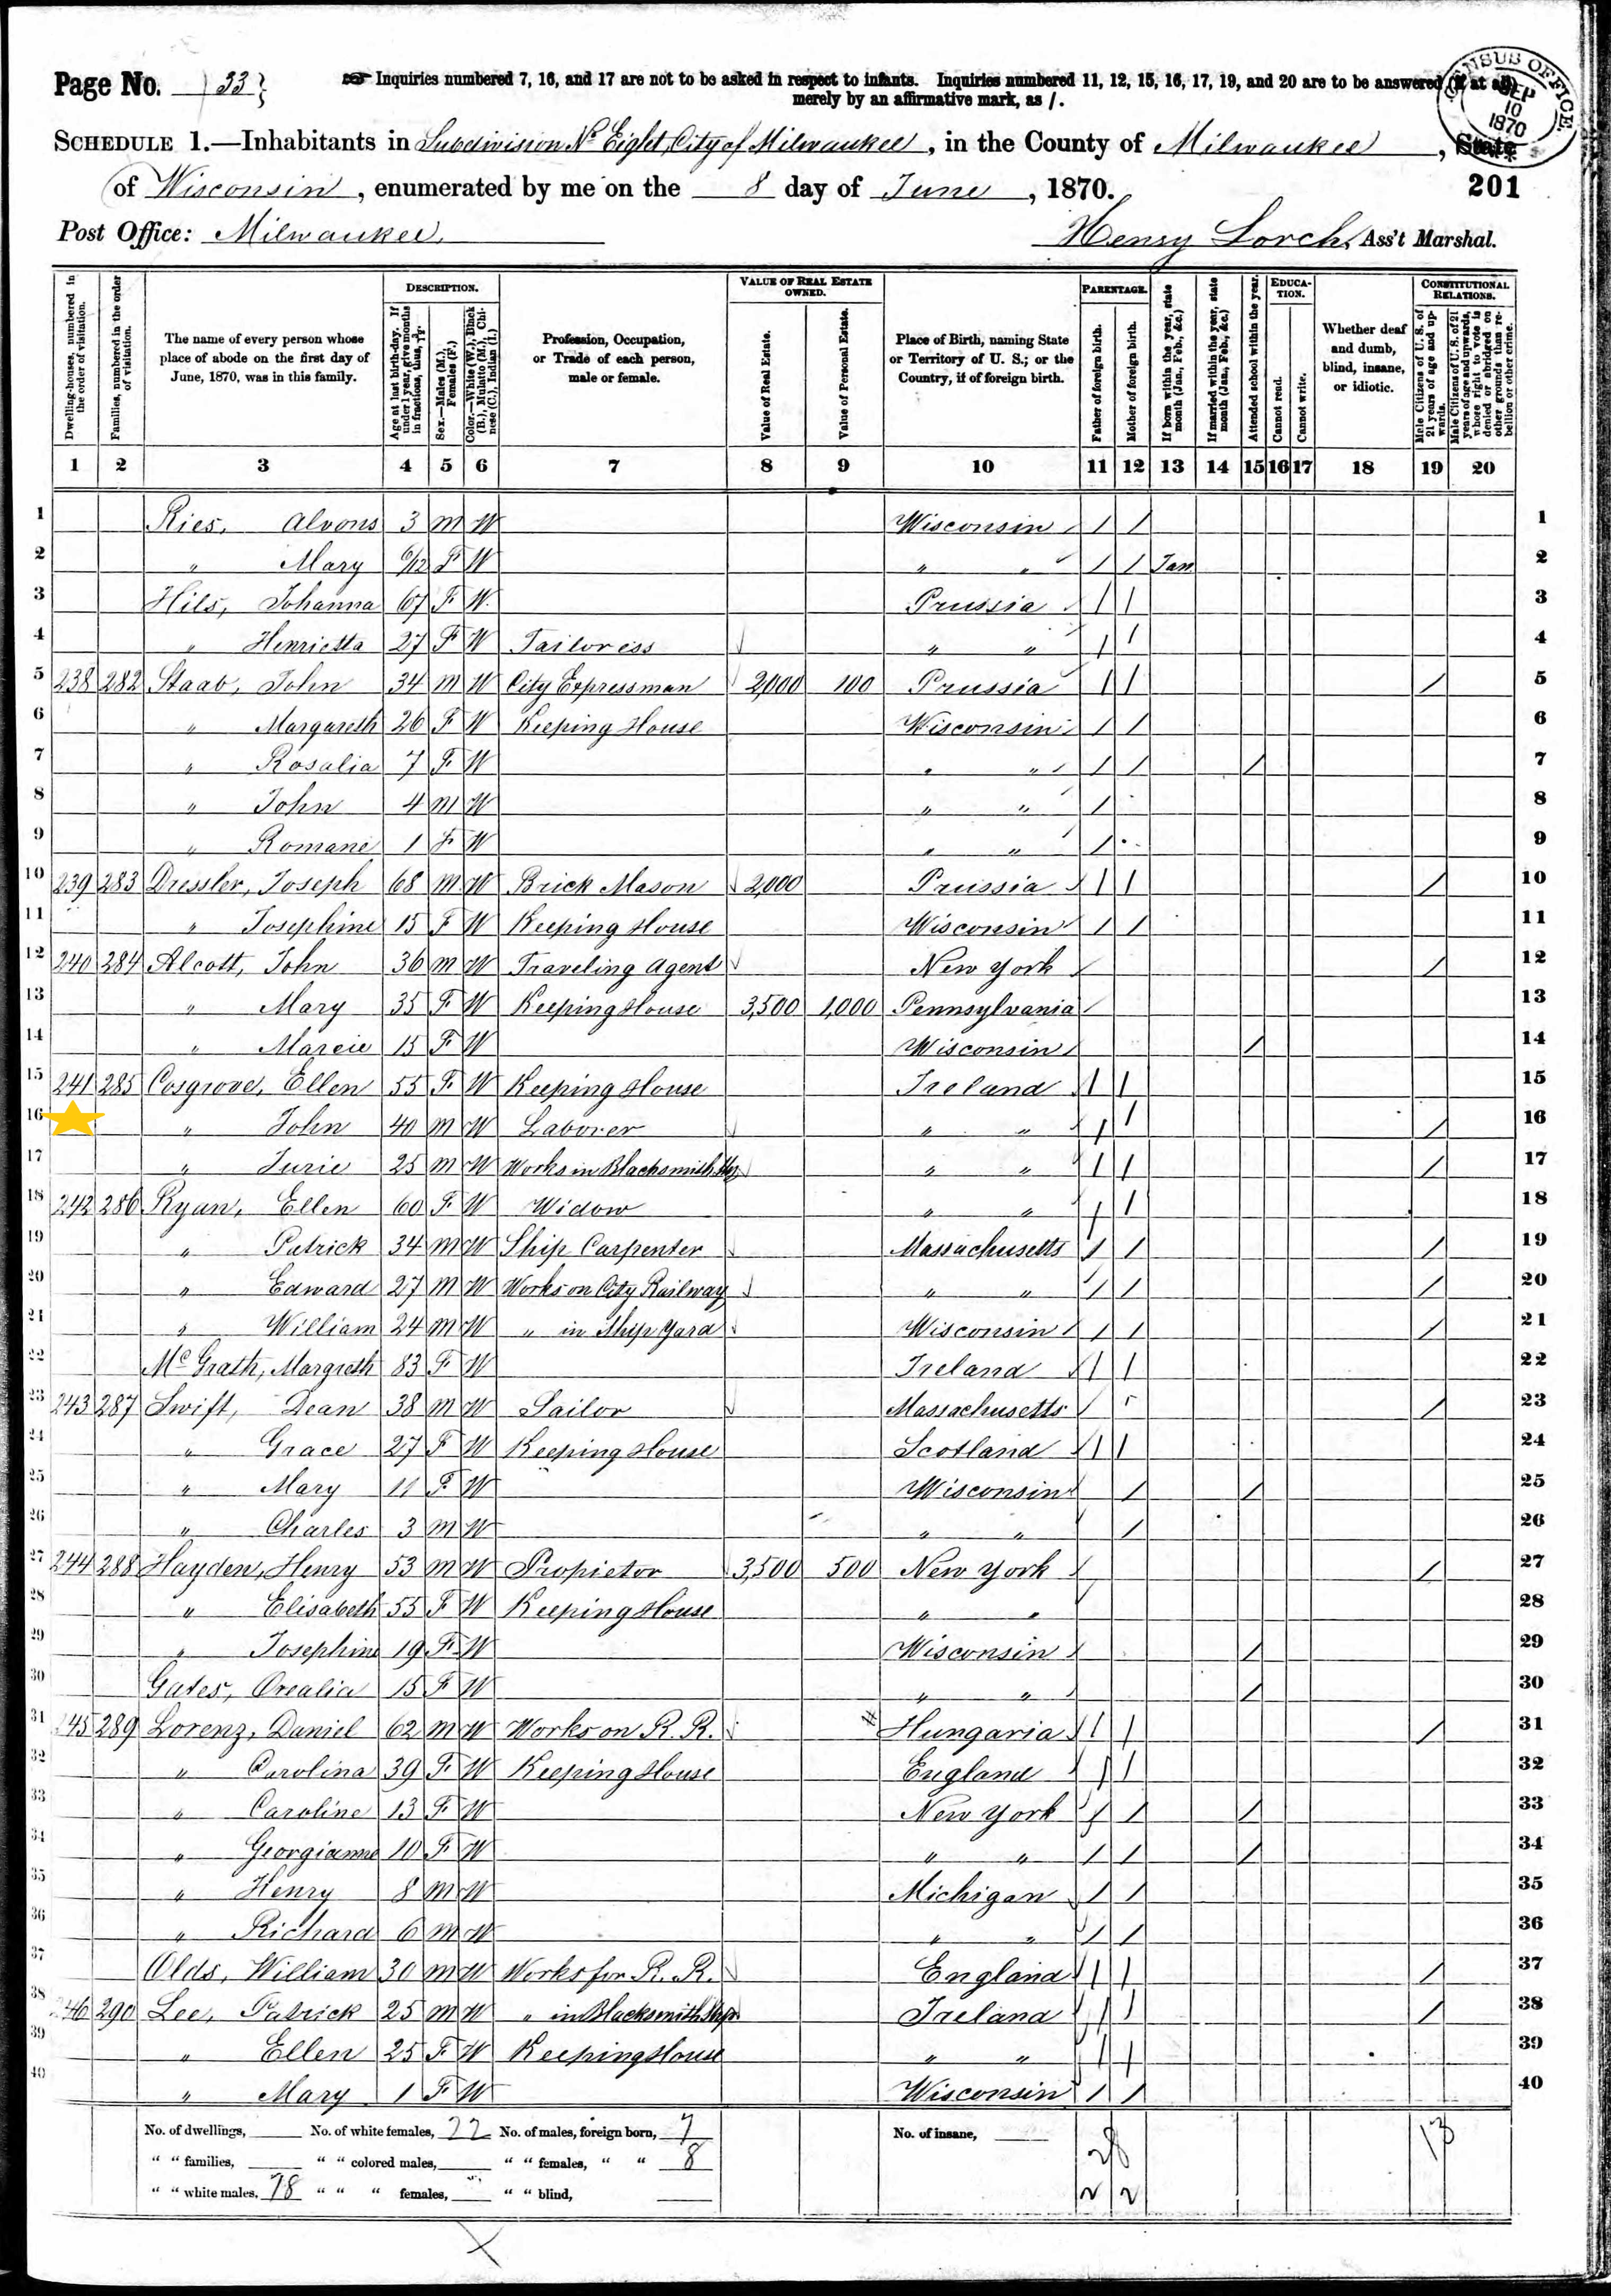 Page No. 33 } ☞ Inquiries numbered 7, 16, and 17 are not to be asked in respect to infants. Inquiries numbered 11, 12, 15, 16, 17, 19, and 20 are to be answered (if at all)
merely by an affirmative mark, as /.
CENSUS OFFICE. SEP 10 1870
SCHEDULE 1.—Inhabitants in Subdivision No Eight, City of Milwaukee, in the County of Milwaukee, State
of Wisconsin, enumerated by me on the 8 day of June, 1870.
201
Post Office: Milwaukee. Henry Lorch, Ass't Marshal.
Dwelling-houses, numbered in the order of visitation.
Families, numbered in the order of visitation.
The name of every person whose place of abode on the first day of June, 1870, was in this family.
DESCRIPTION.
Age at last birth-day. If under 1 year, give months in fractions, thus,
Sex.—Males (M.), Females (F.)
Color.—White (W.), Black (B.), Mulatto (M.), Chinese (C.), Indian (I.)
Profession, Occupation, or Trade of each person, male or female.
VALUE OF REAL ESTATE OWNED.
Value of Real Estate.
Value of Personal Estate.
Place of Birth, naming State or Territory of U. S.; or the Country, if of foreign birth.
PARENTAGE.
Father of foreign birth.
Mother of foreign birth.
If born within the year, state month (Jan., Feb., &c.)
If married within the year, state month (Jan., Feb., &c.)
Attended school within the year.
EDUCATION.
Cannot read.
Cannot write.
Whether deaf and dumb, blind, insane, or idiotic.
CONSTITUTIONAL RELATIONS.
Male Citizens of U. S. of 21 years of age and upwards.
Male Citizens of U. S. of 21 years of age and upwards, whose right to vote is denied or abridged on other grounds than rebellion or other crime.
1 2 3 4 5 6 7 8 9 10 11 12 13 14 15 16 17 18 19 20
1 Ries, Alvons 3 M W Wisconsin / / 1
2 " Mary F W " " / / Jan 2
3 Hils, Johanna 67 F W Prussia / / 3
4 " Henrietta 27 F W Tailoress " " / / 4
5 238 282 Staab, John 34 M W City Expressman 2,000 100 Prussia / / / 5
6 " Margareth 26 F W Keeping House Wisconsin / / 6
7 " Rosalia 7 F W " " / / / 7
8 " John 4 M W " " / 8
9 " Romane 1 F W " " / 9
10 239 283 Dressler, Joseph 68 M W Brick Mason 2,000 Prussia / / / 10
11 " Josephine 15 F W Keeping House Wisconsin / / 11
12 240 284 Alcott, John 36 M W Traveling Agent New York / 12
13 " Mary 35 F W Keeping House 3,500 1,000 Pennsylvania 13
14 " Marcie 15 F W Wisconsin / 14
15 241 285 Cosgrove, Ellen 55 F W Keeping House Ireland / / 15
16 " John 40 M W Laborer " " / / / 16
17 " 25 M W Works in Blacksmith Shop " " / / / 17
18 242 286 Ryan, Ellen 60 F W Widow " " / / 18
19 " Patrick 34 M W Ship Carpenter Massachusetts / / / 19
20 " Edward 27 M W Works on City Railway " " / / / 20
21 " William 24 M W " in Ship Yard Wisconsin / / / 21
22 McGrath, Margreth 83 F W Ireland / / 22
23 243 287 Swift, Dean 38 M W Sailor Massachusetts / 23
24 " Grace 27 F W Keeping House Scotland / / 24
25 " Mary 11 F W Wisconsin / / 25
26 " Charles 3 M W " " / 26
27 244 288 Hayden, Henry 53 M W Propietor 3,500 500 New York / 27
28 " Elisabeth 55 F W Keeping House " " 28
29 " Josephine 19 F W Wisconsin / 29
30 Gates, Orealia 15 F W " " / 30
31 245 289 Lorenz, Daniel 62 M W Works on R. R. Hungaria / / / 31
32 " Carolina 39 F W Keeping House England / / 32
33 " Caroline 13 F W New York / / / 33
34 " Georgianne 10 F W " " / / / 34
35 " Henry 8 M W Michigan / / 35
36 " Richard 6 M W " " / / 36
37 Olds, William 30 M W Works for R. R. England / / / 37
38 246 290 Lee, Patrick 25 M W " in Blacksmith Shop Ireland / / / 38
39 " Ellen 25 F W Keeping House " " / / 39
40 " Mary 1 F W Wisconsin / / 40
No. of dwellings, No. of white females, 22 No. of males, foreign born, 7 No. of insane, 28 13
" " families, " " colored males, " " females, " " 8
" " white males, 18 " " " females, " " blind, 2 2